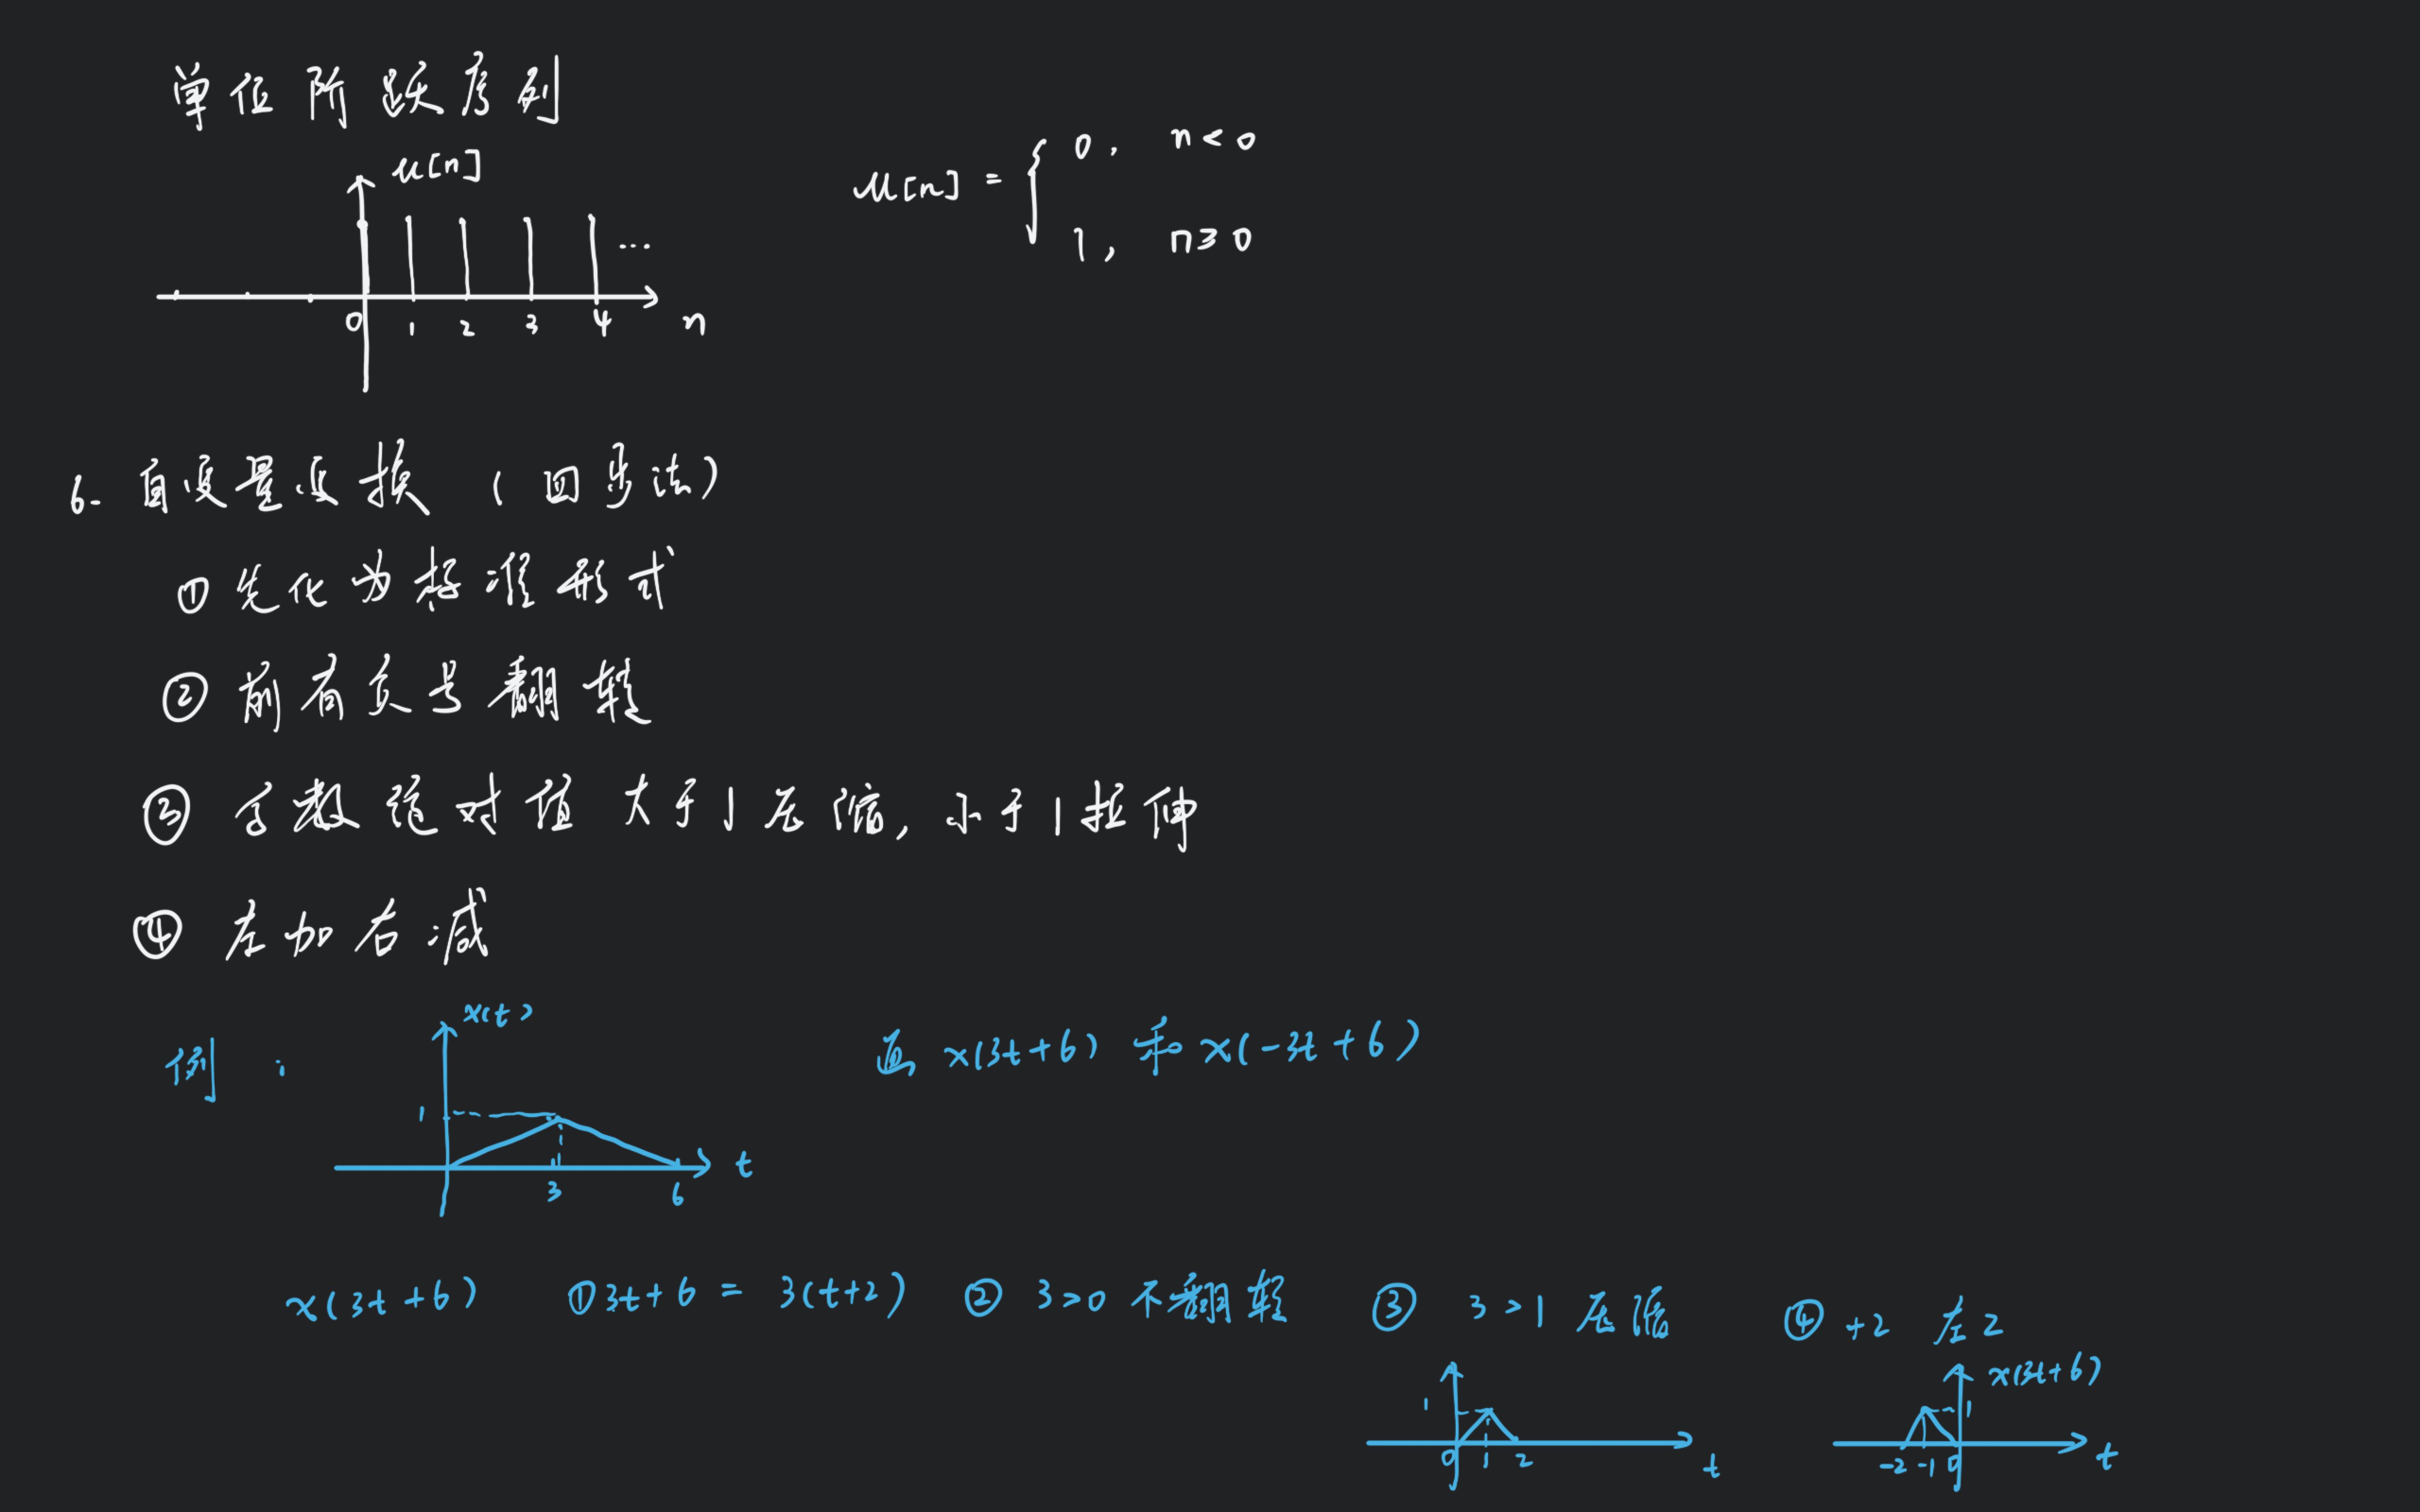 单位阶跃序列
u[n]
u[n] = { 0, n<0
1, n≥0
...
0 1 2 3 4 n
6. 自变量变换 (四步法)
① 先化为标准形式
② 前有负号翻转
③ 系数绝对值大于1压缩, 小于1拉伸
④ 左加右减
例:
x(t)
画 x(3t+6) 和 x(-3t+6)
1
t
3 6
x(3t+6) ① 3t+6 = 3(t+2) ② 3>0 不翻转 ③ 3>1 压缩 ④ +2 左2
1
0 1 2 t
x(3t+6)
1
-2 -1 0 t